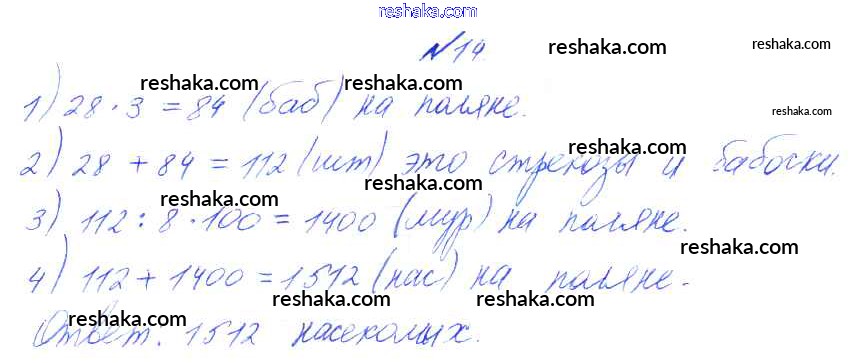 reshaka.com
№14. reshaka.com
reshaka.com reshaka.com
1) 28 · 3 = 84 (баб) на поляне. reshaka.com
reshaka.com
2) 28 + 84 = 112 (шт) это стрекозы и бабоски.
reshaka.com reshaka.com
3) 112 : 8 · 100 = 1400 (мур) на поляне.
reshaka.com reshaka.com
4) 112 + 1400 = 1512 (нас) на поляне.
reshaka.com reshaka.com reshaka.com
Ответ: 1512 насекомых.